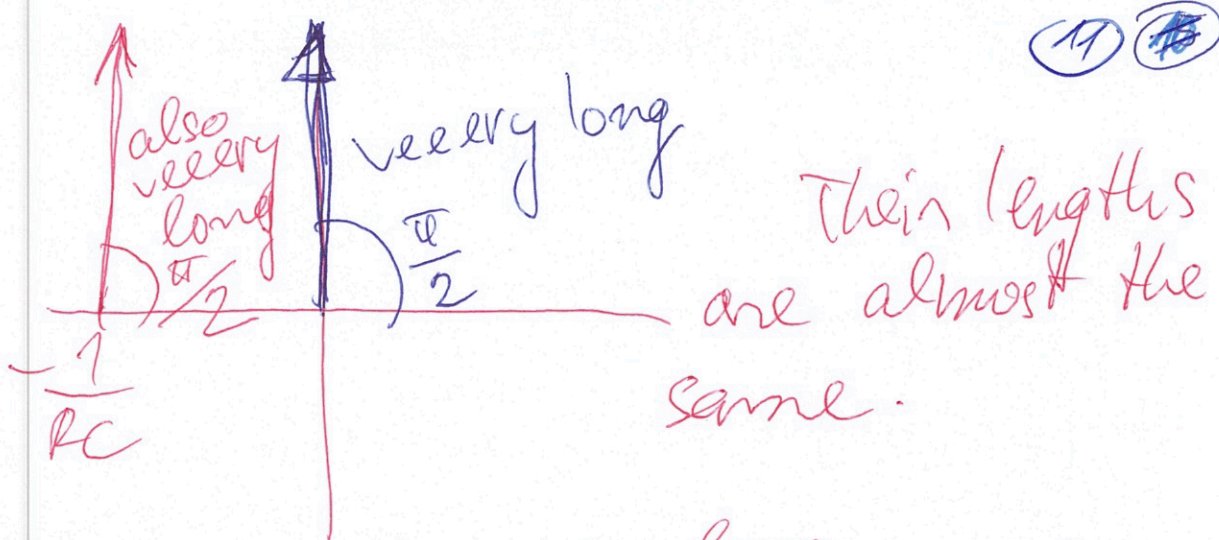 11
also
veeery
long
π/2
veeery long
π
2
Their lengths
are almost the
same.
- 1
RC